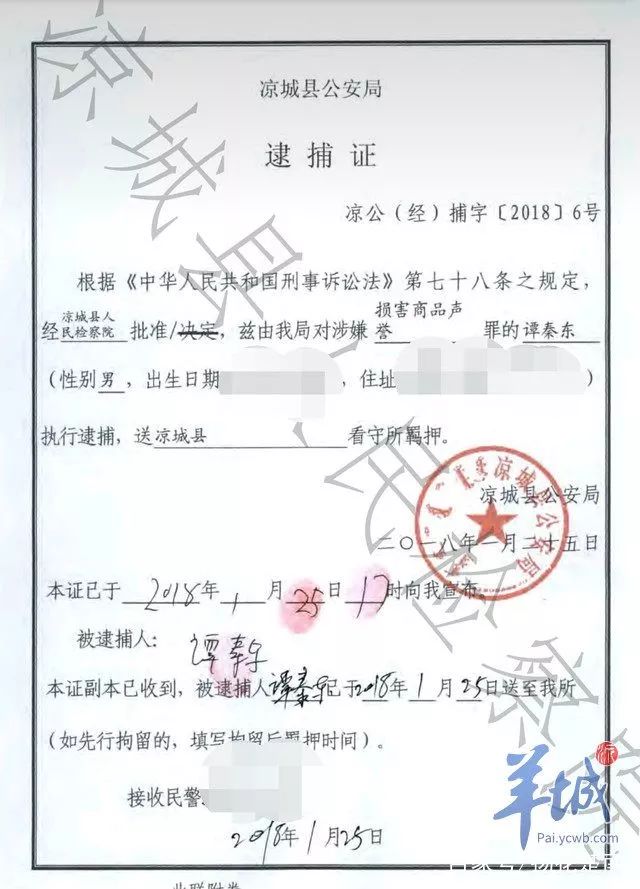 凉城县公安局
逮捕证
凉公（经）捕字〔2018〕6号
根据《中华人民共和国刑事诉讼法》第七十八条之规定，
经凉城县人民检察院批准/决定，兹由我局对涉嫌损害商品声誉罪的谭秦东
（性别男，出生日期，住址）
执行逮捕，送凉城县看守所羁押。
凉城县公安局
二〇一八年一月二十五日
凉城县公安局
本证已于2018年1月25日17时向我宣布。
被逮捕人：谭秦东
本证副本已收到，被逮捕人谭秦东已于2018年1月25日送至我所
（如先行拘留的，填写拘留后羁押时间）。
接收民警
2018年1月25日
凉城县人民检察院
羊城派
Pai.ycwb.com